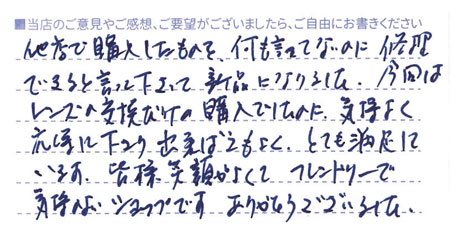 ■当店のご意見やご感想、ご要望がございましたら、ご自由にお書きください
他店で購入したものを、何も言ってないのに修理
できると言って下さって新品になりました。今回は
レンズの交換だけの購入でしたのに、気持よく
応対に下さり出来ばえもよく、とても満足して
います。皆様笑顔がよくてフレンドリーで
気持のよいショップです ありがとうございました。